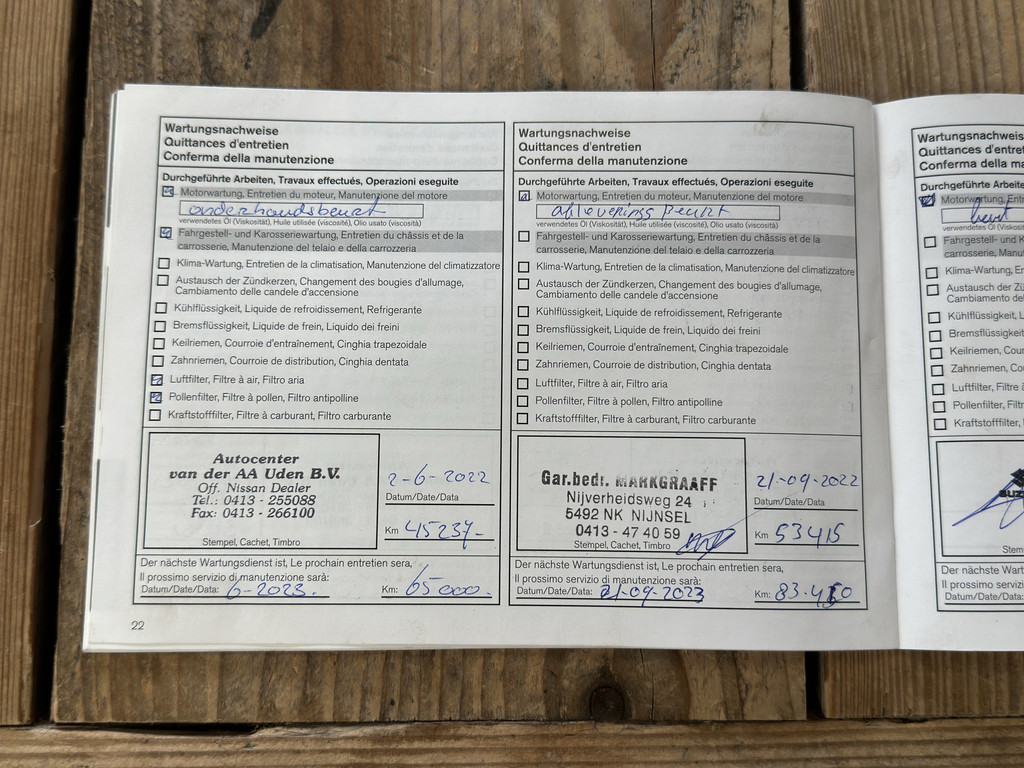 Wartungsnachweise
Quittances d'entretien
Conferma della manutenzione
Durchgeführte Arbeiten, Travaux effectués, Operazioni eseguite
Motorwartung, Entretien du moteur, Manutenzione del motore
onderhoudsbeurt
verwendetes Öl (Viskosität), Huile utilisée (viscosité), Olio usato (viscosità)
Fahrgestell- und Karosseriewartung, Entretien du châssis et de la
carrosserie, Manutenzione del telaio e della carrozzeria
Klima-Wartung, Entretien de la climatisation, Manutenzione del climatizzatore
Austausch der Zündkerzen, Changement des bougies d'allumage,
Cambiamento delle candele d'accensione
Kühlflüssigkeit, Liquide de refroidissement, Refrigerante
Bremsflüssigkeit, Liquide de frein, Liquido dei freini
Keilriemen, Courroie d'entraînement, Cinghia trapezoidale
Zahnriemen, Courroie de distribution, Cinghia dentata
Luftfilter, Filtre à air, Filtro aria
Pollenfilter, Filtre à pollen, Filtro antipolline
Kraftstofffilter, Filtre à carburant, Filtro carburante
Autocenter
van der AA Uden B.V.
Off. Nissan Dealer
Tel.: 0413 - 255088
Fax: 0413 - 266100
Stempel, Cachet, Timbro
2-6-2022
Datum/Date/Data
Km 45237-
Der nächste Wartungsdienst ist, Le prochain entretien sera,
Il prossimo servizio di manutenzione sarà:
Datum/Date/Data: 6-2023. Km: 65000.
22
Wartungsnachweise
Quittances d'entretien
Conferma della manutenzione
Durchgeführte Arbeiten, Travaux effectués, Operazioni eseguite
Motorwartung, Entretien du moteur, Manutenzione del motore
afleverings beurt
verwendetes Öl (Viskosität), Huile utilisée (viscosité), Olio usato (viscosità)
Fahrgestell- und Karosseriewartung, Entretien du châssis et de la
carrosserie, Manutenzione del telaio e della carrozzeria
Klima-Wartung, Entretien de la climatisation, Manutenzione del climatizzatore
Austausch der Zündkerzen, Changement des bougies d'allumage,
Cambiamento delle candele d'accensione
Kühlflüssigkeit, Liquide de refroidissement, Refrigerante
Bremsflüssigkeit, Liquide de frein, Liquido dei freini
Keilriemen, Courroie d'entraînement, Cinghia trapezoidale
Zahnriemen, Courroie de distribution, Cinghia dentata
Luftfilter, Filtre à air, Filtro aria
Pollenfilter, Filtre à pollen, Filtro antipolline
Kraftstofffilter, Filtre à carburant, Filtro carburante
Gar.bedr. MARKGRAAFF
Nijverheidsweg 24
5492 NK NIJNSEL
0413 - 47 40 59
Stempel, Cachet, Timbro
21-09-2022
Datum/Date/Data
Km 53415
Der nächste Wartungsdienst ist, Le prochain entretien sera,
Il prossimo servizio di manutenzione sarà:
Datum/Date/Data: 21-09-2023 Km:
Wartungsnachweise
Quittances d'entret
Conferma della ma
Durchgeführte Arbeiten,
Motorwartung, Entre
beurt
verwendetes Öl (Viskosität
Fahrgestell- und K
carrosserie, Manu
Klima-Wartung, En
Austausch der Zü
Cambiamento dell
Kühlflüssigkeit, L
Bremsflüssigkeit
Keilriemen, Cour
Zahnriemen, Co
Luftfilter, Filtre à
Pollenfilter, Filtr
Kraftstofffilter,
Stem
Der nächste Wart
Il prossimo servizio
Datum/Date/Data: